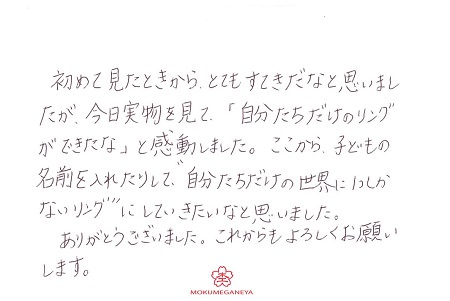 初めて見たときから、とてもすてきだなと思いまし
たが、今日実物を見て、「自分たちだけのリング
ができたな」と感動しました。ここから、子どもの
名前を入れたりして"自分たちだけの世界に1つしか
ないリング"にしていきたいなと思いました。
ありがとうございました。これからもよろしくお願い
します。
MOKUMEGANEYA